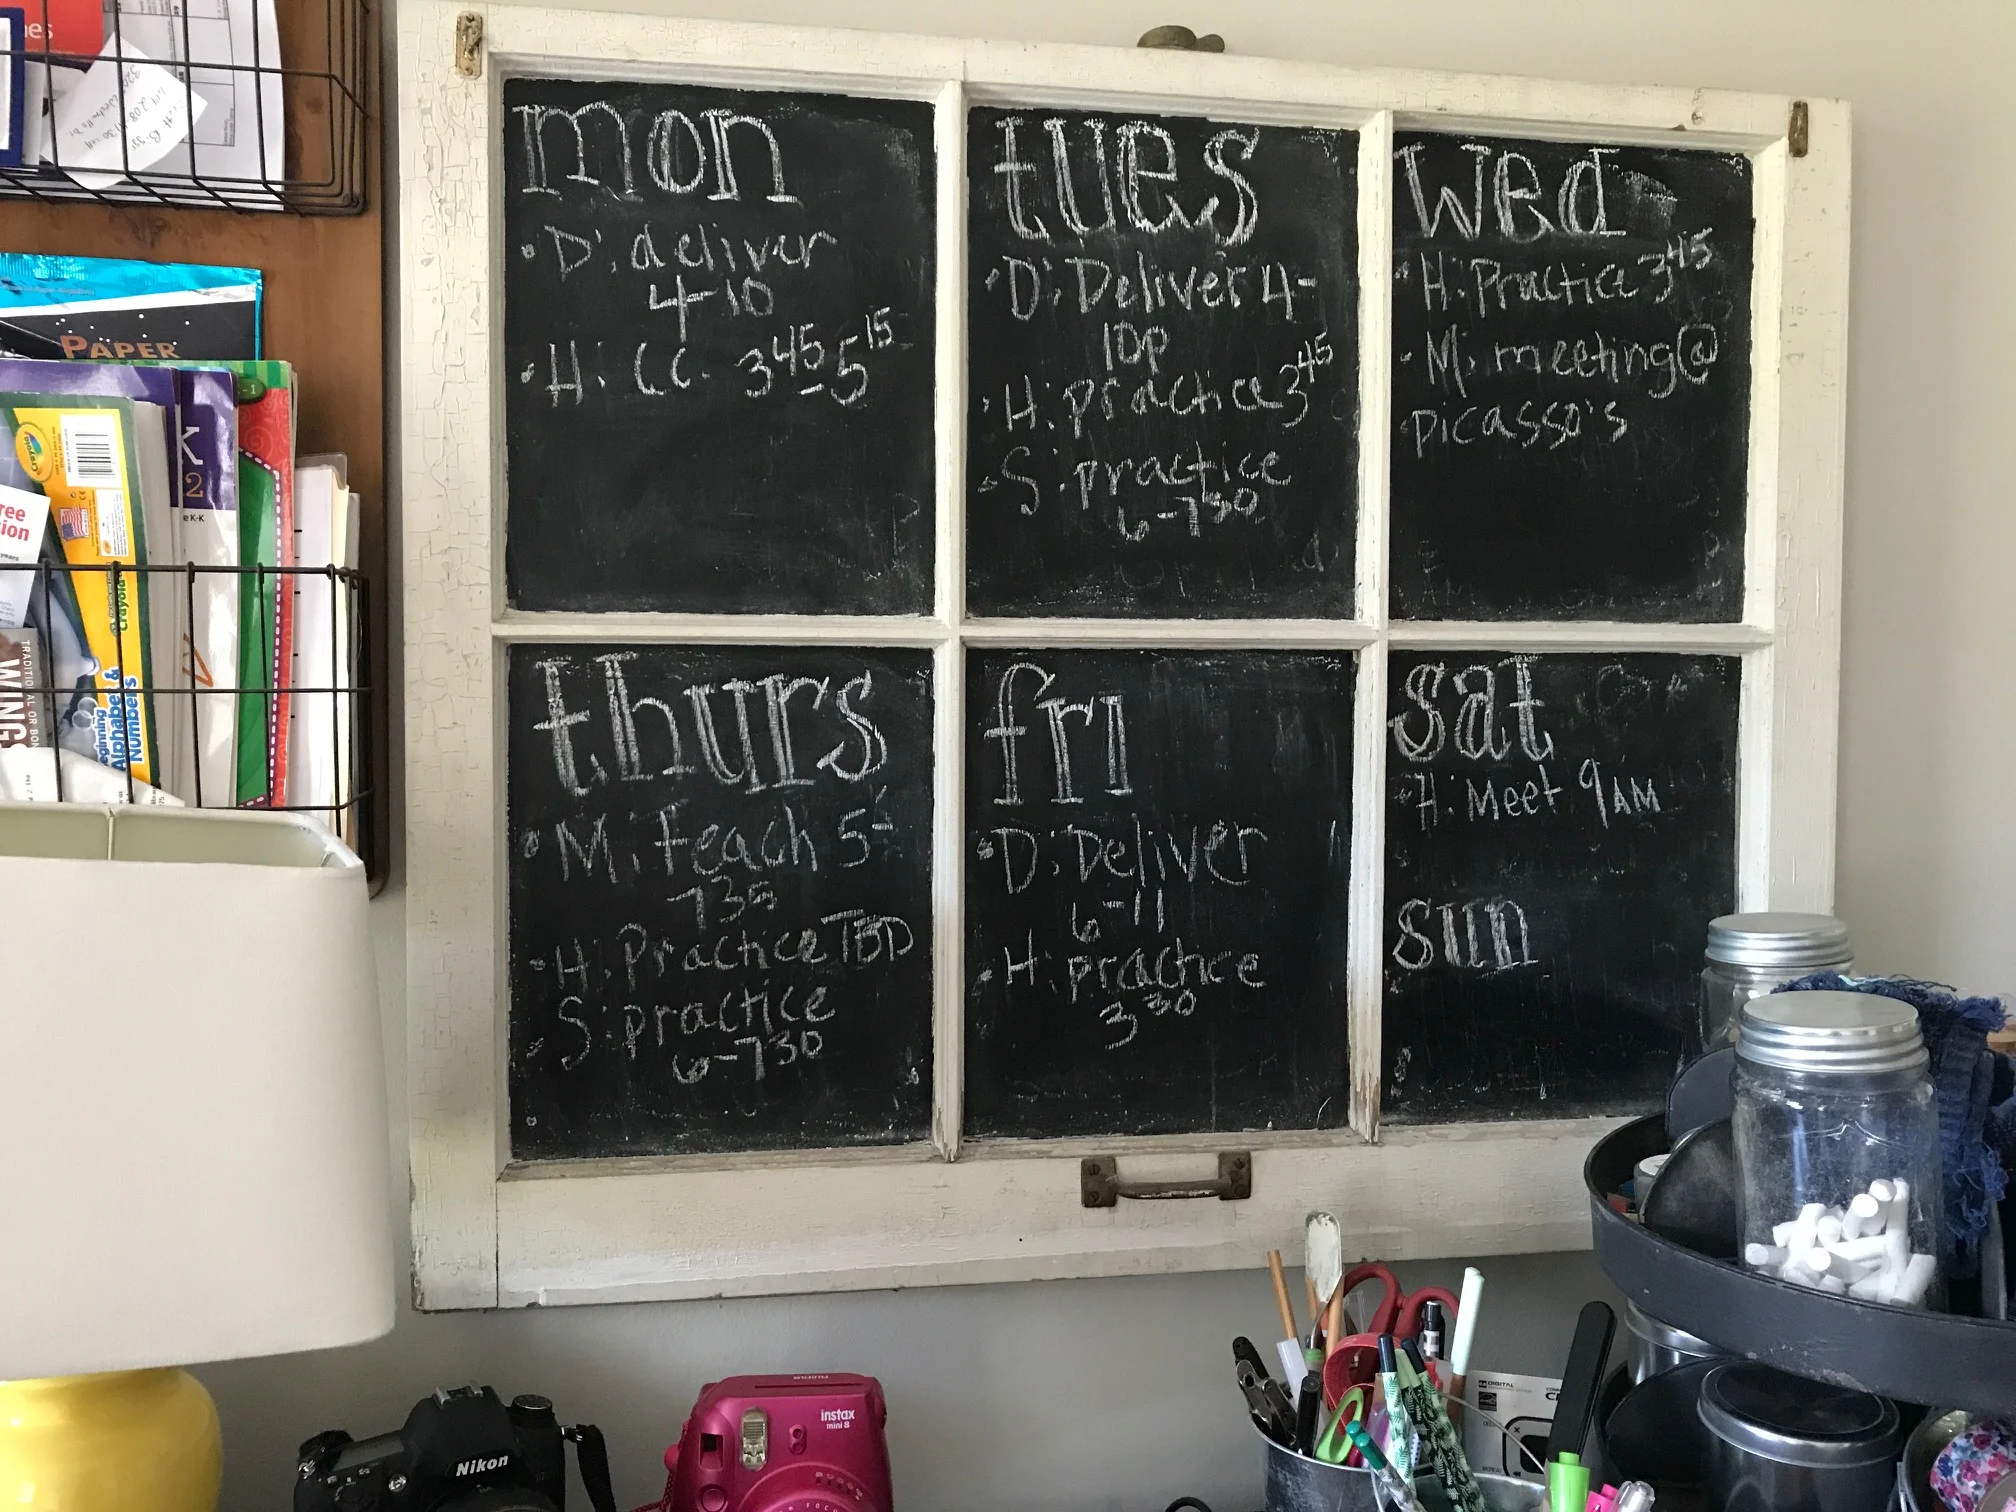 mon
• D: deliver
4-10
• H: CC. 3⁴⁵-5¹⁵
tues
• D: Deliver 4-
10p
• H: practice 3⁴⁵
• S: practice
6-7³⁰
wed
• H: Practice 3⁴⁵
• M: meeting @
picasso's
thurs
• M: teach 5-
7³⁵
• H: Practice TBD
S: practice
6-7³⁰
fri
• D: Deliver
6-11
• H: practice
3³⁰
sat
• H: Meet 9AM
sun
PAPER
Crayola
K
2
ree
sion
years
Crayola
Alphabet &
Numbers
WINGS
TRADITIONAL OR BON
Nikon
FUJIFILM
instax
mini 8
DIGITAL